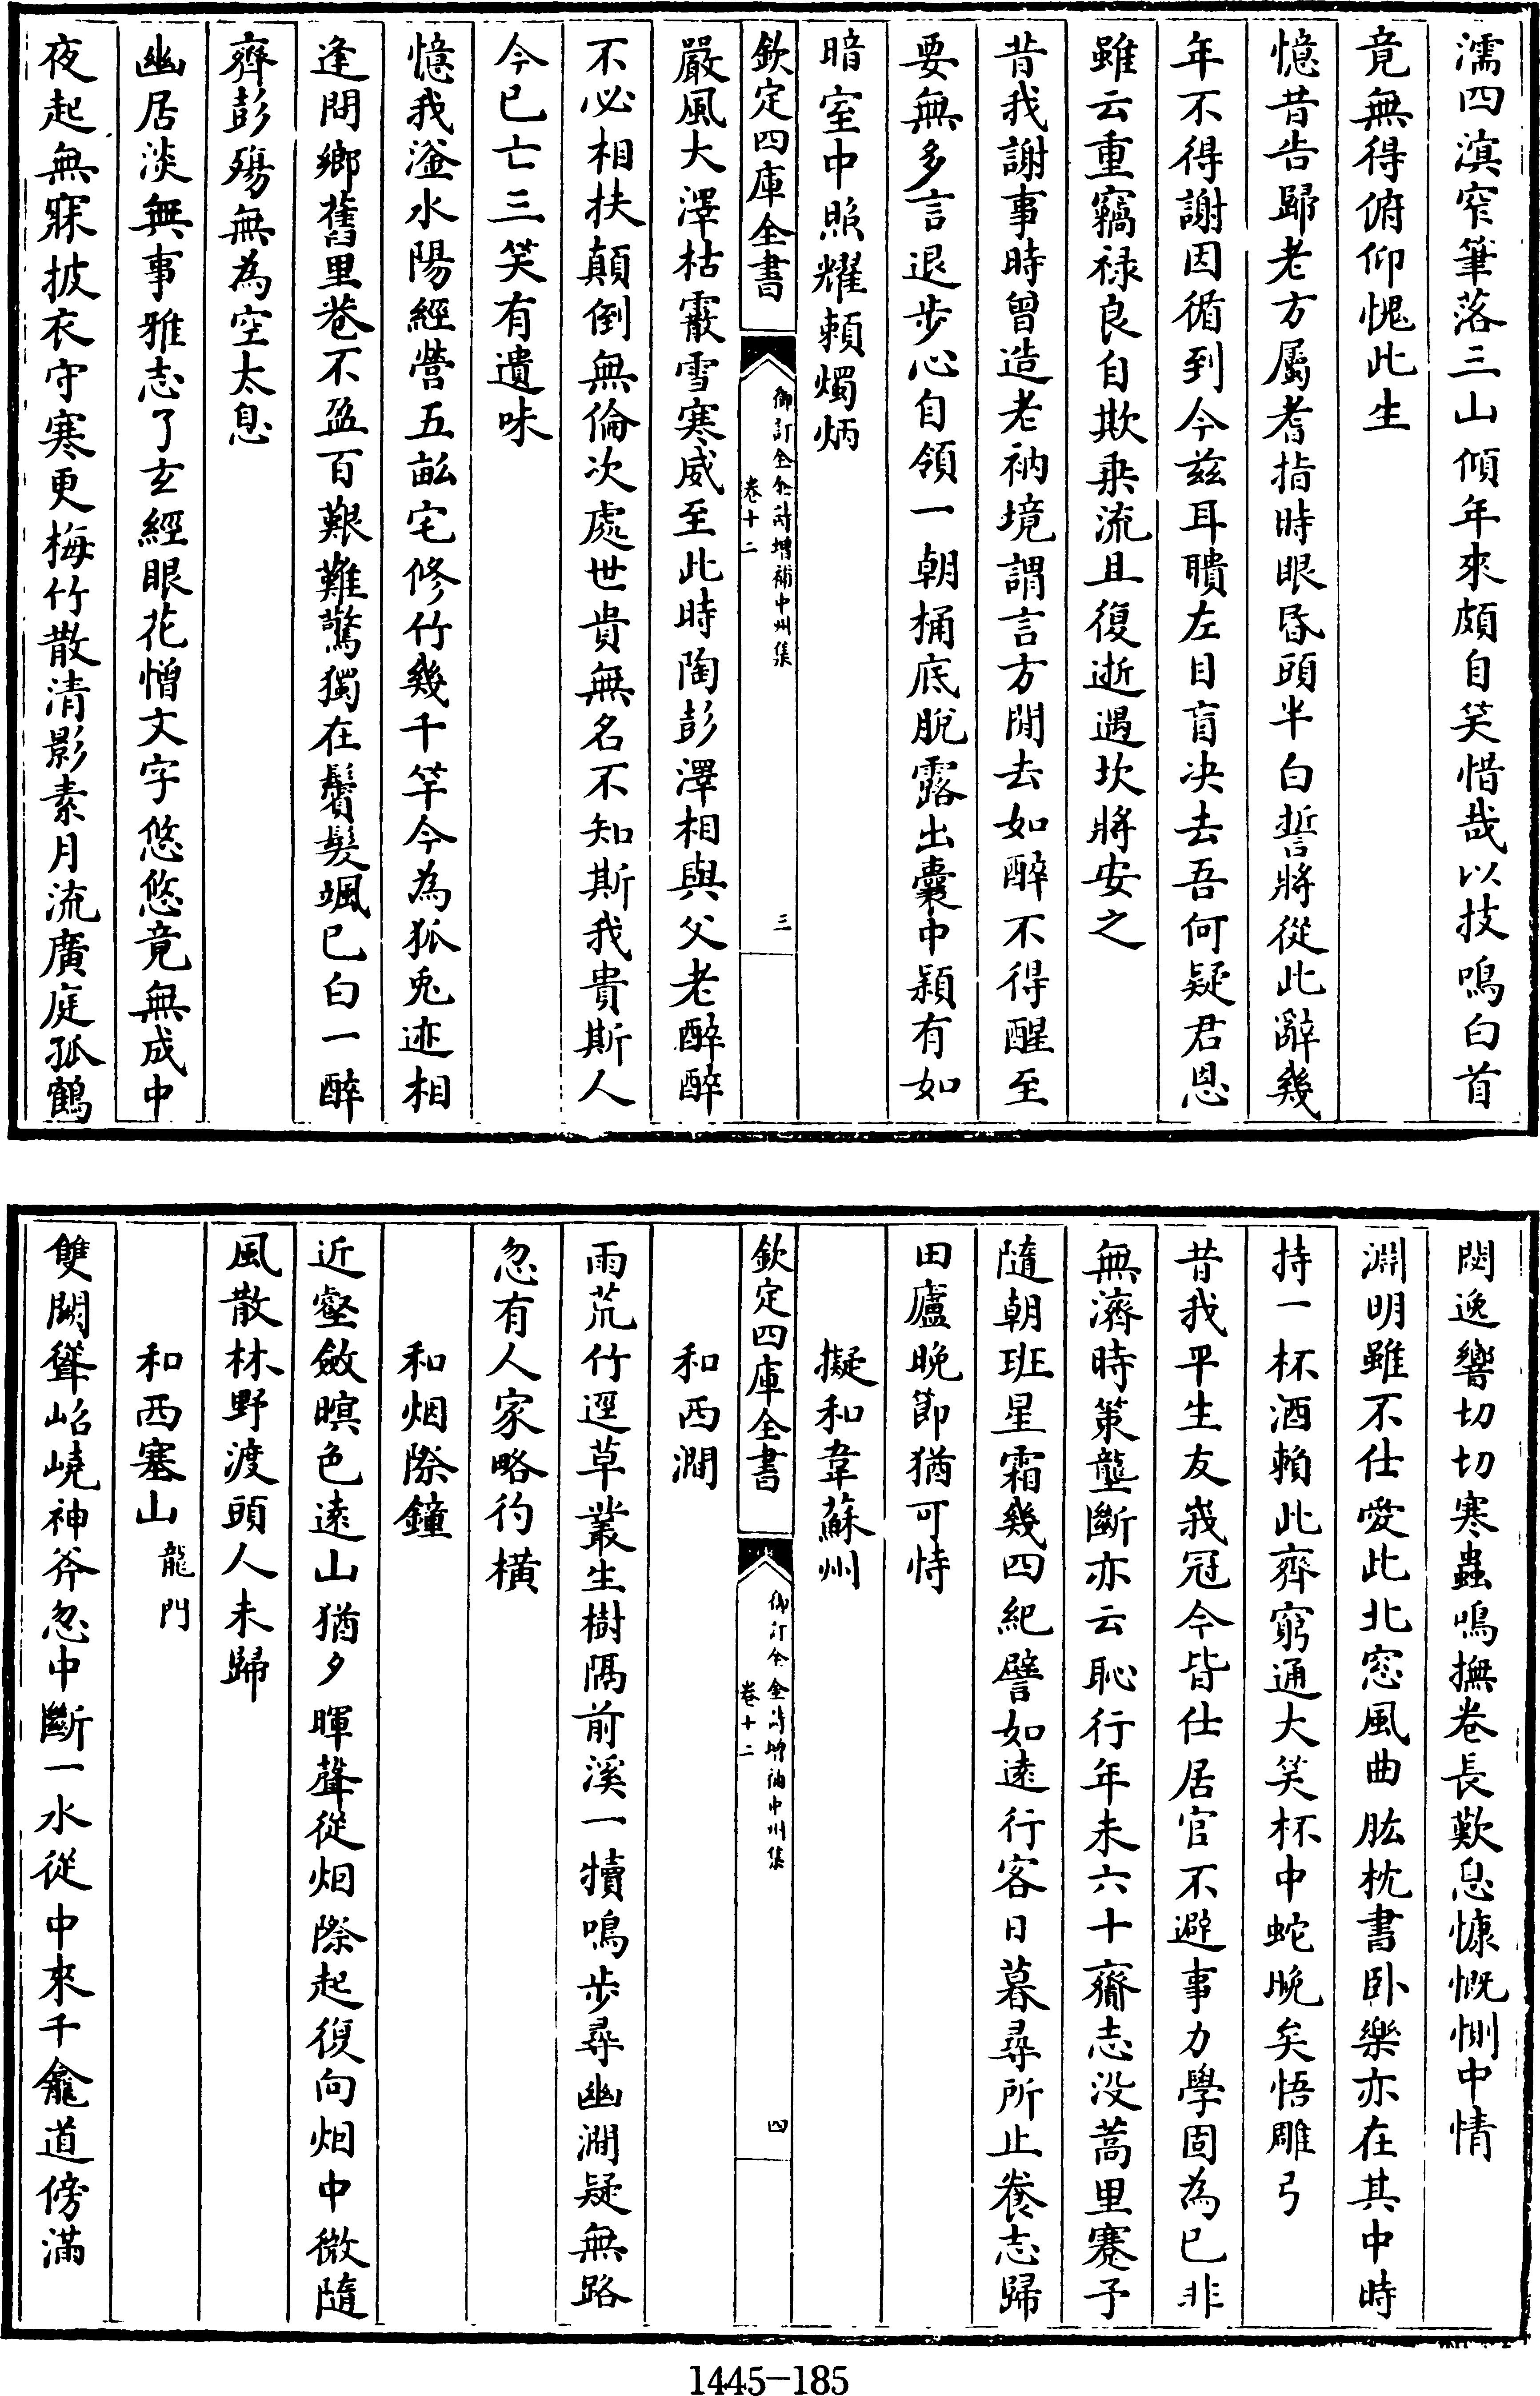 濡四溟窄筆落三山傾年來頗自笑惜哉以技鳴白首
竟無得俯仰愧此生
憶昔告歸老方屬耆指時眼昏頭半白誓將從此辭幾
年不得謝因循到今兹耳聵左目盲决去吾何疑君恩
雖云重竊禄良自欺乗流且復逝遇坎將安之
昔我謝事時曾造老衲境謂言方閒去如醉不得醒至
要無多言退步心自領一朝桶底脱露出囊中穎有如
暗室中照耀賴燭炳
欽定四庫全書
御訂全金詩增補中州集
卷十二
三
嚴風大澤枯霰雪寒威至此時陶彭澤相與父老醉醉
不必相扶顛倒無倫次處世貴無名不知斯我貴斯人
今已亡三笑有遺味
憶我滏水陽經營五畝宅修竹幾千竿今為狐兎迹相
逢問鄉舊里巷不盈百艱難驚獨在鬢髮颯已白一醉
齊彭殤無為空太息
幽居淡無事雅志了玄經眼花憎文字悠悠竟無成中
夜起無寐披衣守寒更梅竹散清影素月流廣庭孤鶴
閟逸響切切寒蟲鳴撫卷長歎息慷慨惻中情
淵明雖不仕愛此北窓風曲肱枕書卧樂亦在其中時
持一杯酒賴此齊窮通大笑杯中蛇晚矣悟雕弓
昔我平生友峩冠今皆仕居官不避事力學固為已非
無濟時策壟斷亦云恥行年未六十齎志没蒿里蹇予
隨朝班星霜幾四紀譬如遠行客日暮尋所止養志歸
田廬晚節猶可恃
擬和韋蘇州
欽定四庫全書
御訂全金詩增補中州集
卷十二
四
和西澗
雨荒竹逕草叢生樹隔前溪一犢鳴步尋幽澗疑無路
忽有人家略彴横
和烟際鐘
近壑斂暝色遠山猶夕暉聲從烟際起復向烟中微隨
風散林野渡頭人未歸
和西塞山 龍門
雙闕聳岧嶢神斧忽中斷一水從中來千龕道傍滿
1445-185